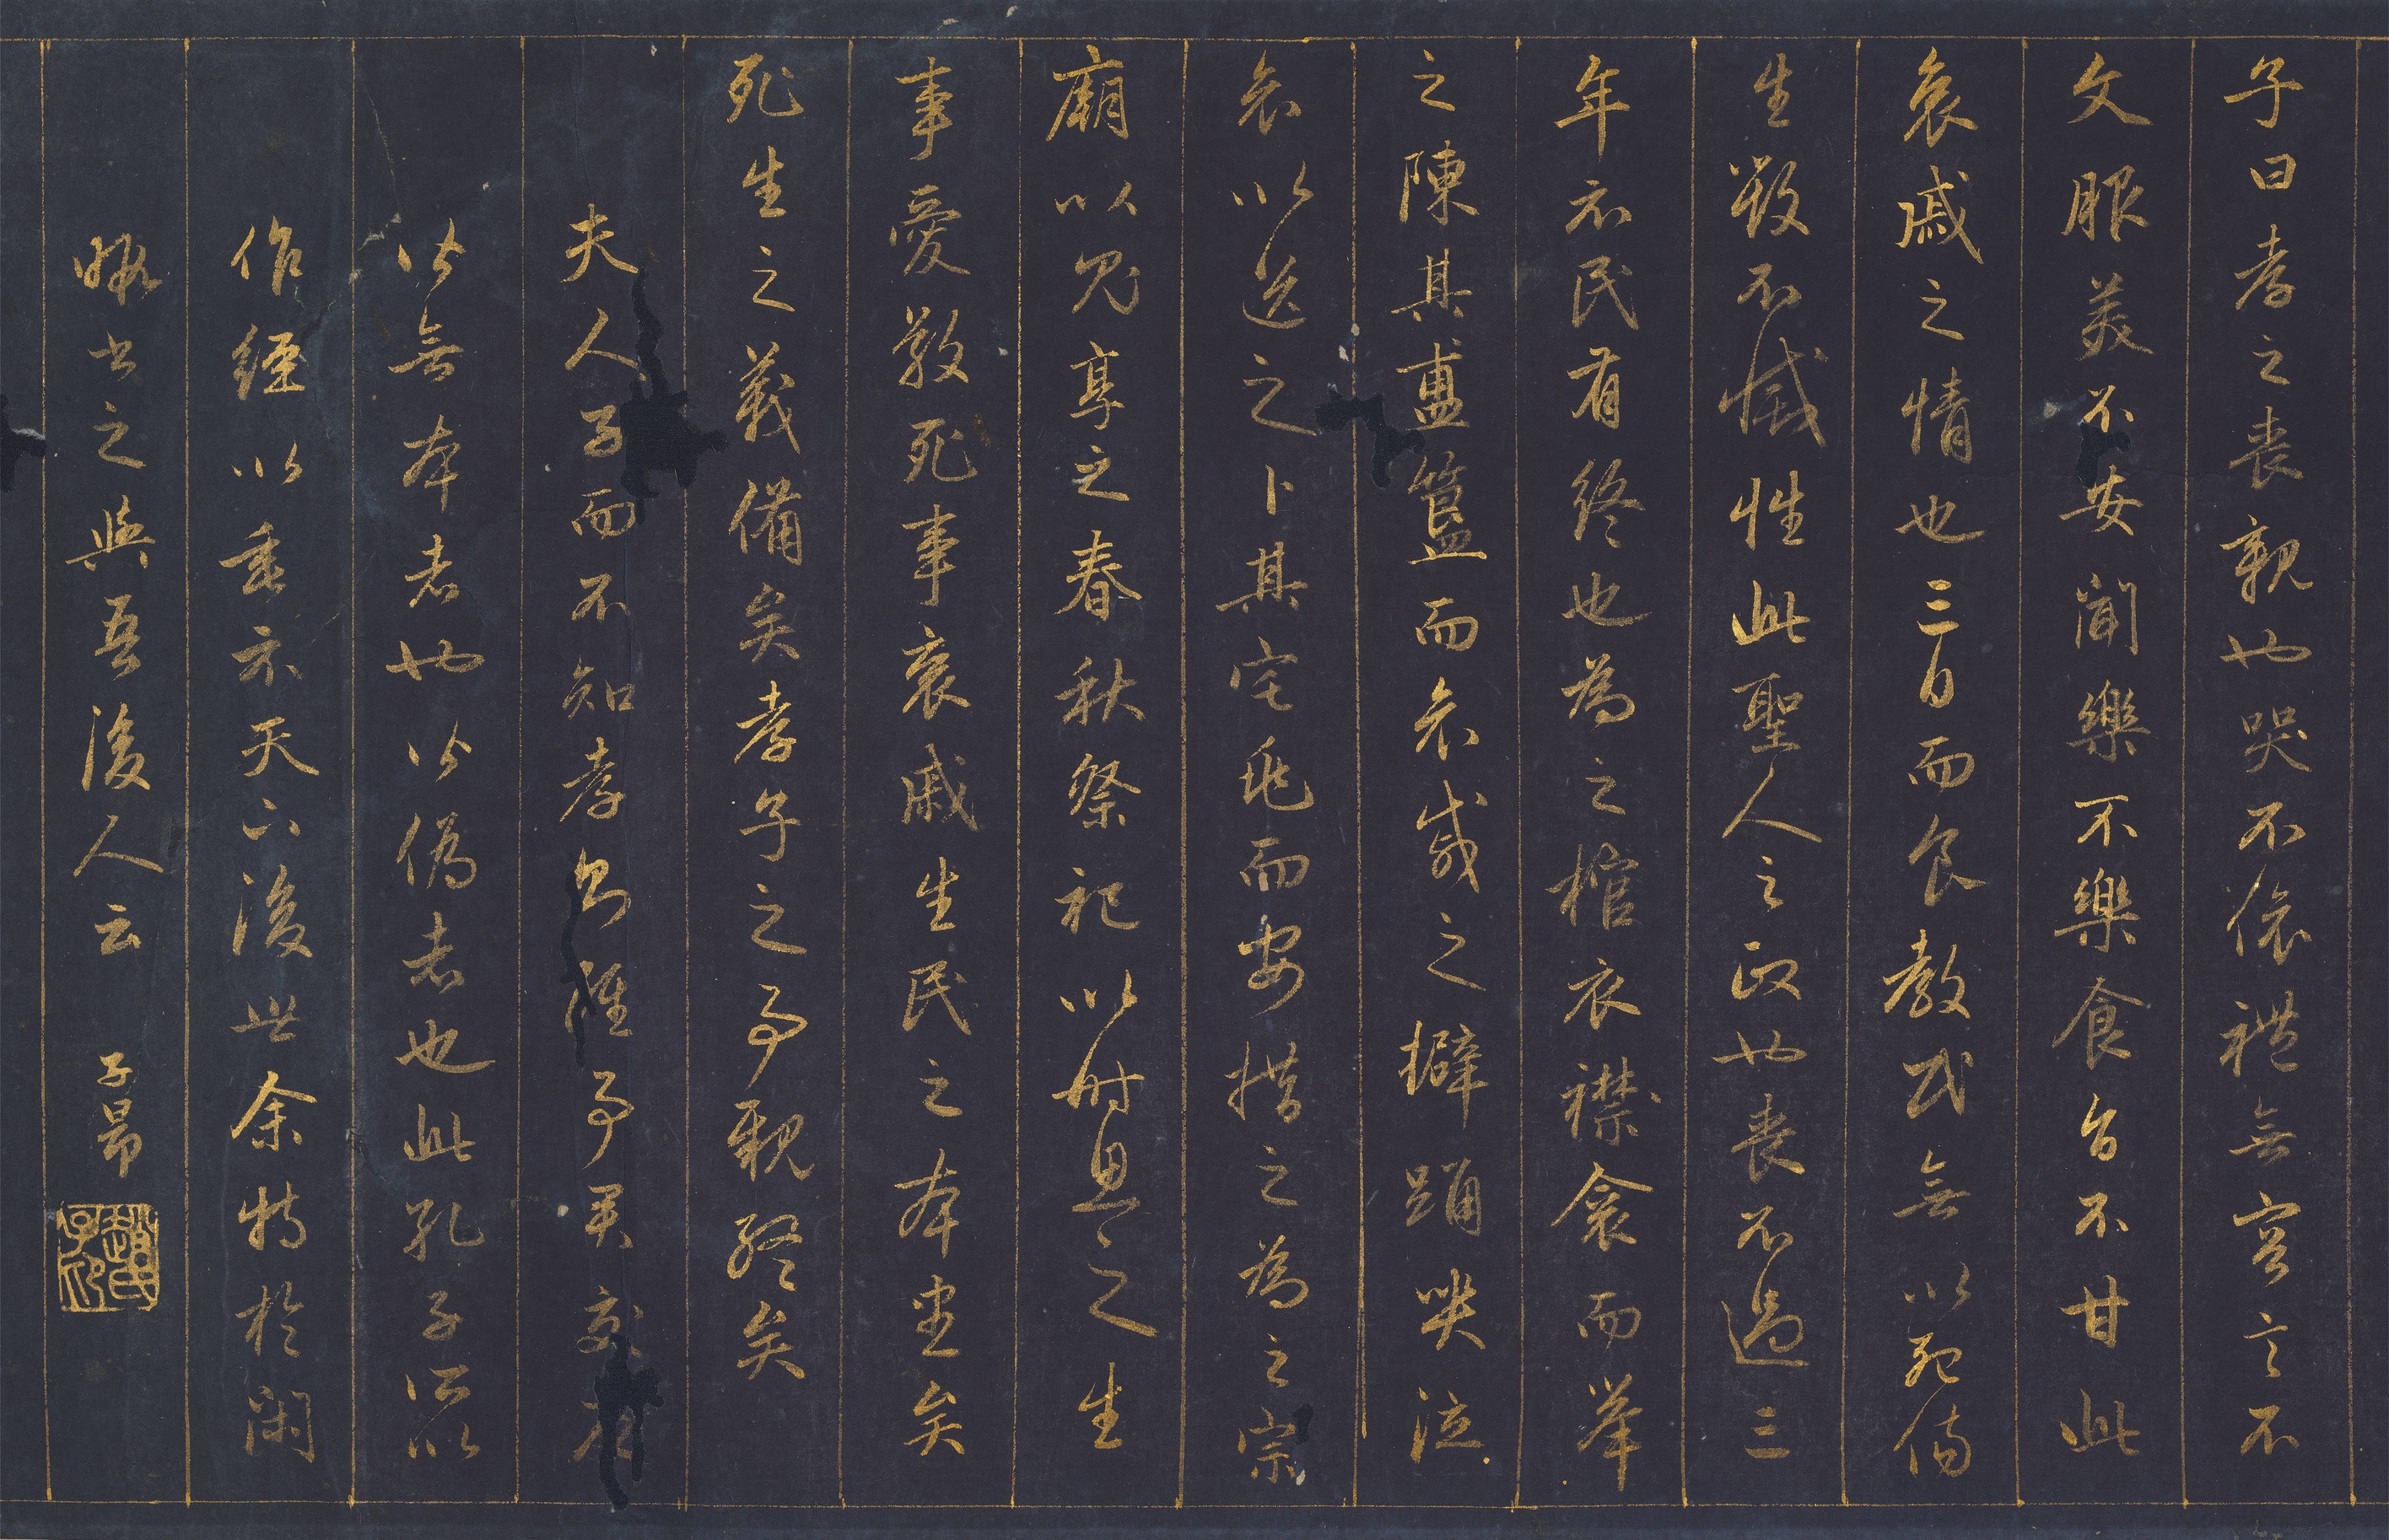 子曰孝之喪親也哭不偯禮無容言不
文服美不安聞樂不樂食旨不甘此
哀戚之情也三日而食教民無以死傷
生毀不滅性此聖人之政也喪不過三
年示民有終也為之棺衣襟衾而舉
之陳其簠簋而哀慼之擗踊哭泣
哀以送之卜其宅兆而安措之為之宗
廟以鬼享之春秋祭祀以時思之生
事愛敬死事哀戚生民之本盡矣
死生之義備矣孝子之事親終矣
夫人子而不知孝則雖事君交友
皆無本者也皆偽者也此孔子所以
作經以垂示天下後世余特於閑
暇書之與吾後人云 子昂
趙氏子印